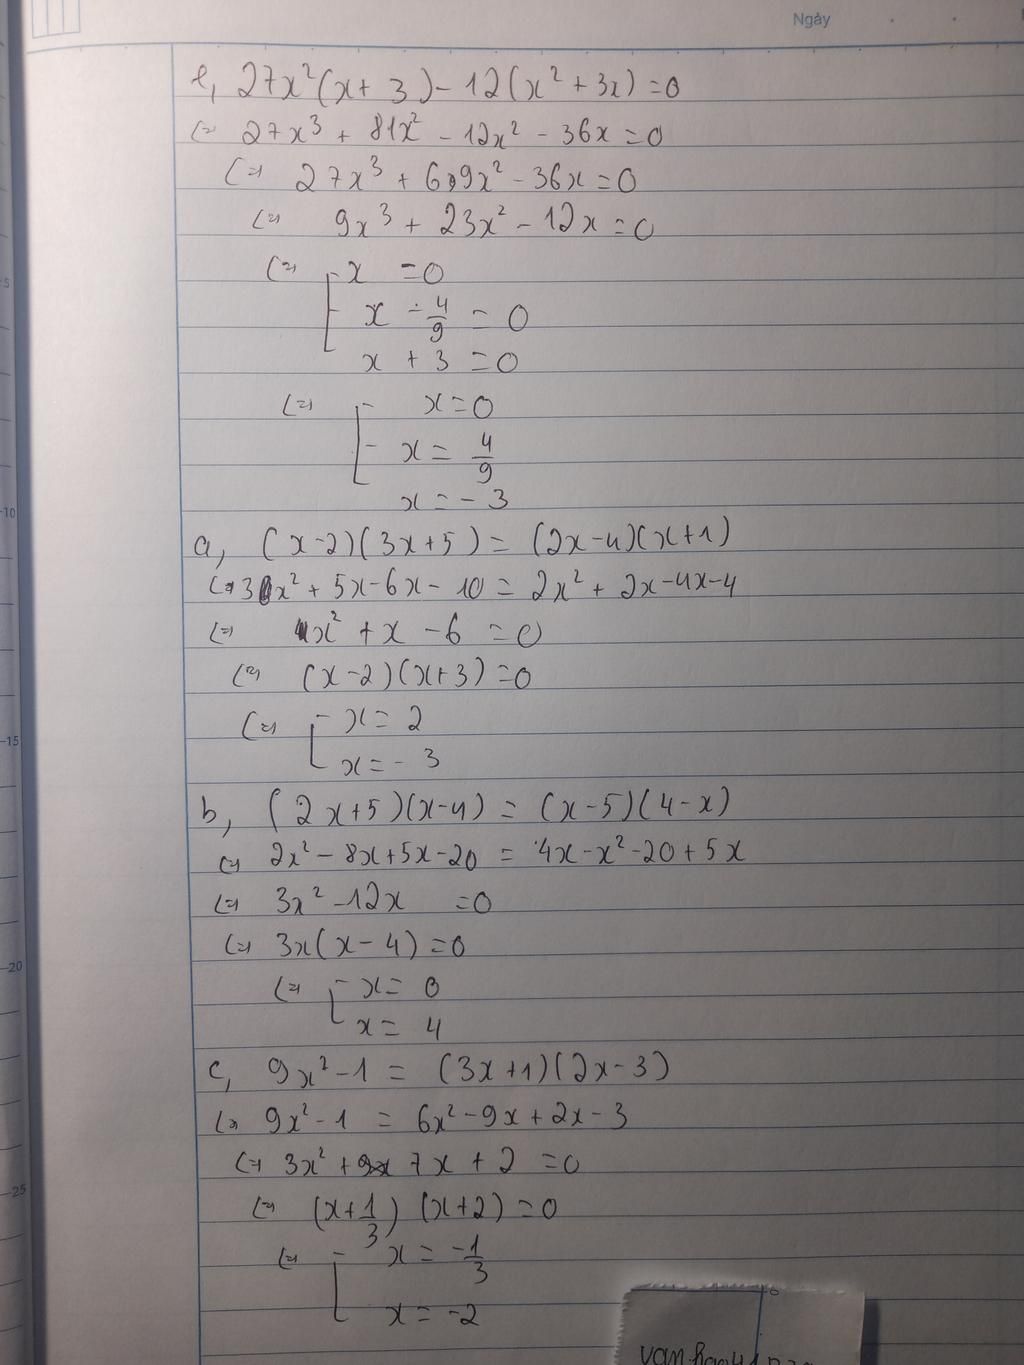 Ngày
e, 27x²(x+3)-12(x²+3x)=0
(=) 27x³ + 81x² - 12x² - 36x = 0
(=) 27x³ + 69x² - 36x = 0
(=) 9x³ + 23x² - 12x = 0
(=) x = 0
x - 4/9 = 0
x + 3 = 0
(=) x = 0
x = 4/9
x = -3
a, (x-2)(3x+5) = (2x-4)(x+1)
(=) 3x² + 5x - 6x - 10 = 2x² + 2x - 4x - 4
(=) x² + x - 6 = 0
(=) (x-2)(x+3) = 0
(=) x = 2
x = -3
b, (2x+5)(x-4) = (x-5)(4-x)
(=) 2x² - 8x + 5x - 20 = 4x - x² - 20 + 5x
(=) 3x² - 12x = 0
(=) 3x(x-4) = 0
(=) x = 0
x = 4
c, 9x² - 1 = (3x+1)(2x-3)
(=) 9x² - 1 = 6x² - 9x + 2x - 3
(=) 3x² + 7x + 2 = 0
(=) (x + 1/3)(x+2) = 0
(=) x = -1/3
x = -2
5
10
15
20
25